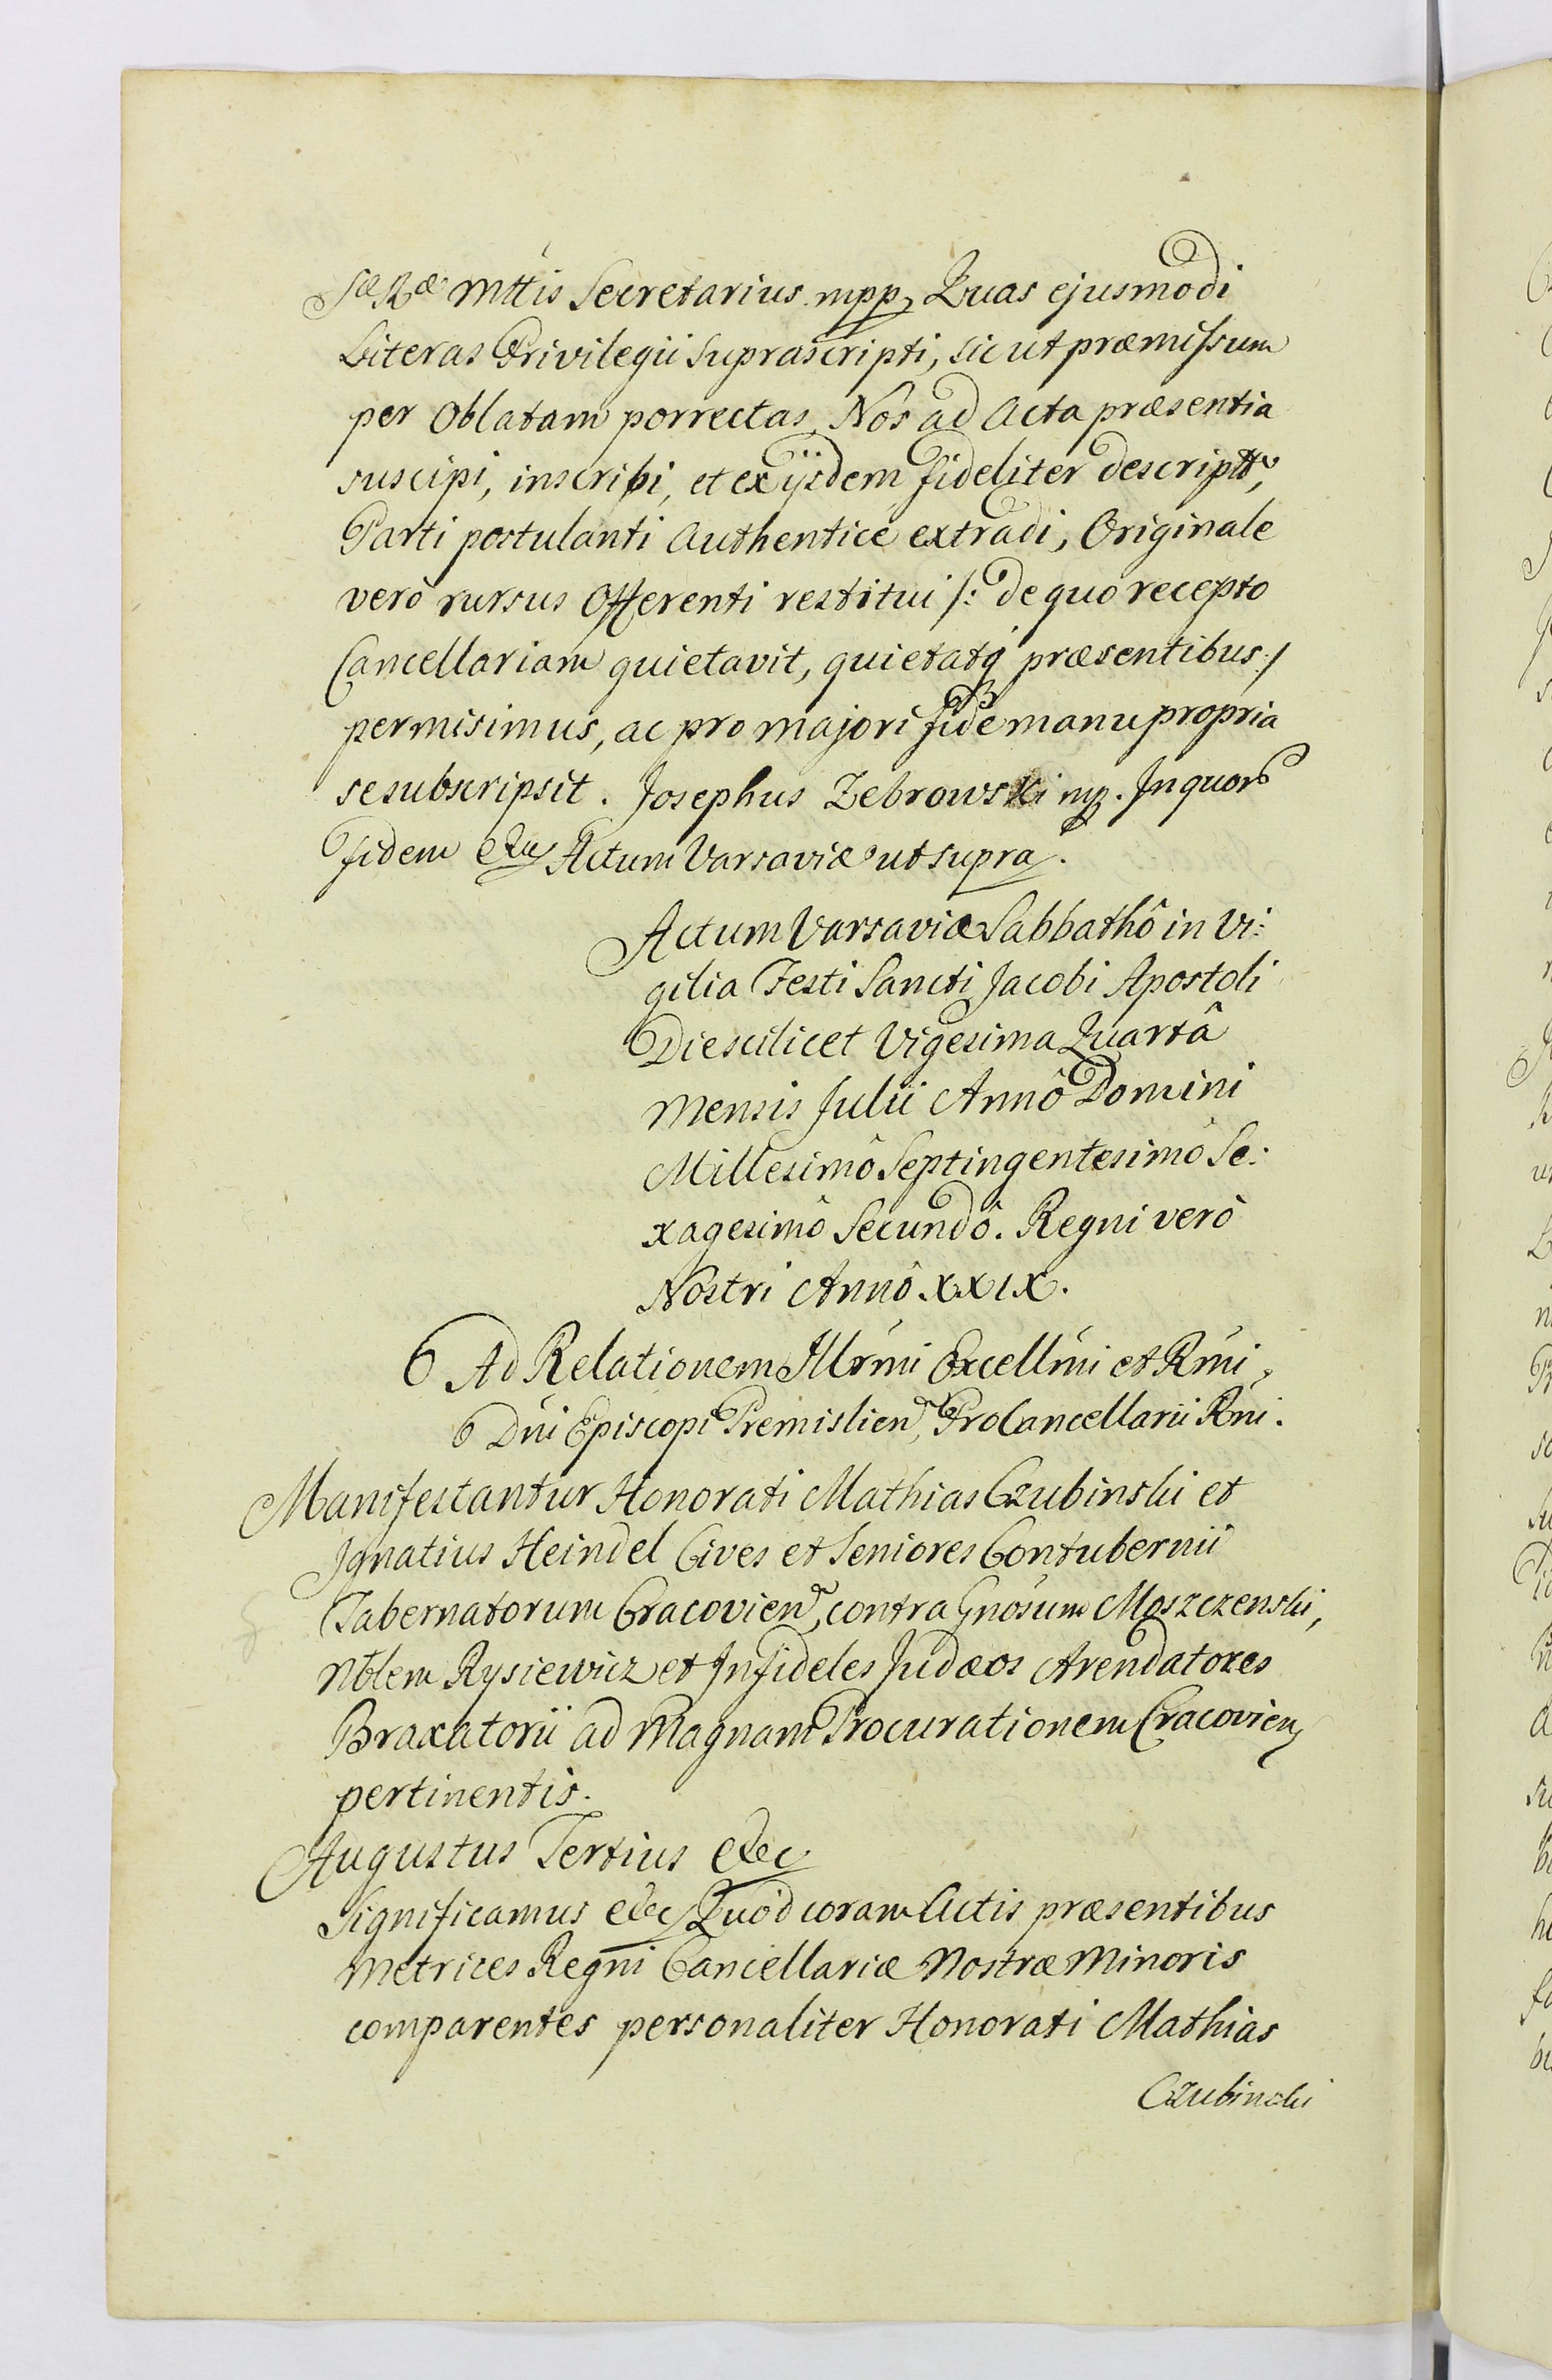 Sæ Ræ Mttis Secretarius mpp, Quas ejusmodi
Literas Privilegii Suprascripti, sic ut præmissum
per Oblatam porrectas, Nos ad Acta præsentia
suscipi, inscribi, et ex ijsdem fideliter descriptt,
Parti postulanti Authenticè extradi, Originale
verò rursus Offerenti restitui /: de quo recepto
Cancellariam quietavit, quietatq præsentibus :/
permisimus, ac pro majori fide manu propria
se subscripsit. Josephus Zebrowski mp. In quor
fidem etc Actum Varsaviæ ut supra.
Actum Varsaviæ Sabbathô in Vi:
gilia Festi Sancti Jacobi Apostoli
Die scilicet Vigesima Quartâ
Mensis Julii Annô Domini
Millesimô Septingentesimô Se:
xagesimô Secundô. Regni verò
Nostri Annô XXIX.
Ad Relationem Illrmi Excellmi et Rmi,
Dni Episcopi Premislien, ProCancellarii Rni.
Manifestantur Honorati Mathias Czubinski et
Ignatius Heindel Cives et Seniores Contubernii
Tabernatorum Cracovien, contra Gnosum Moszczenski,
Nblem Rysiewicz et Infideles Judæos Arendatores
Braxatorii ad Magnam Procurationem Cracovien
pertinentis.
Augustus Tertius etc
Significamus etc Quòd coram Actis præsentibus
Metrices Regni Cancellariæ Nostræ Minoris
comparentes personaliter Honorati Mathias
Czubinski